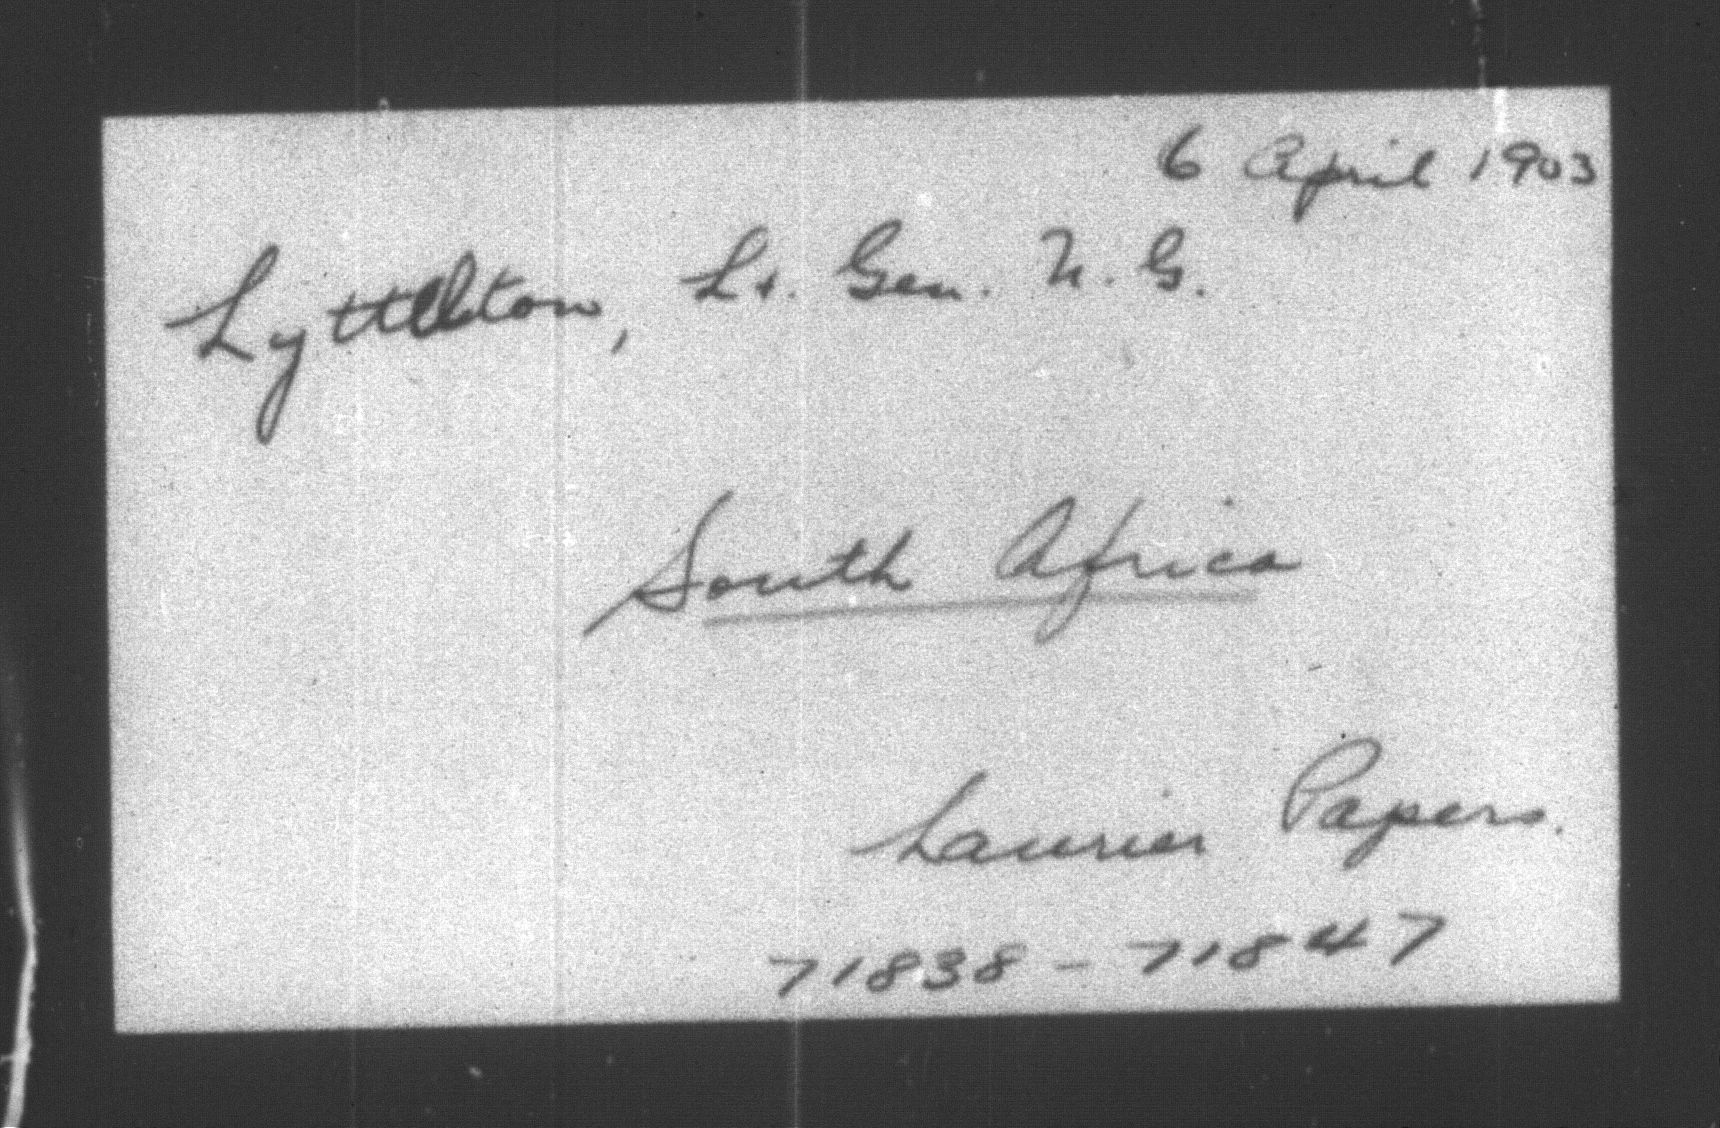 6 April 1903
Lyttelton, Lt. Gen. N. G.
South Africa
Laurier Papers.
71838 - 71847